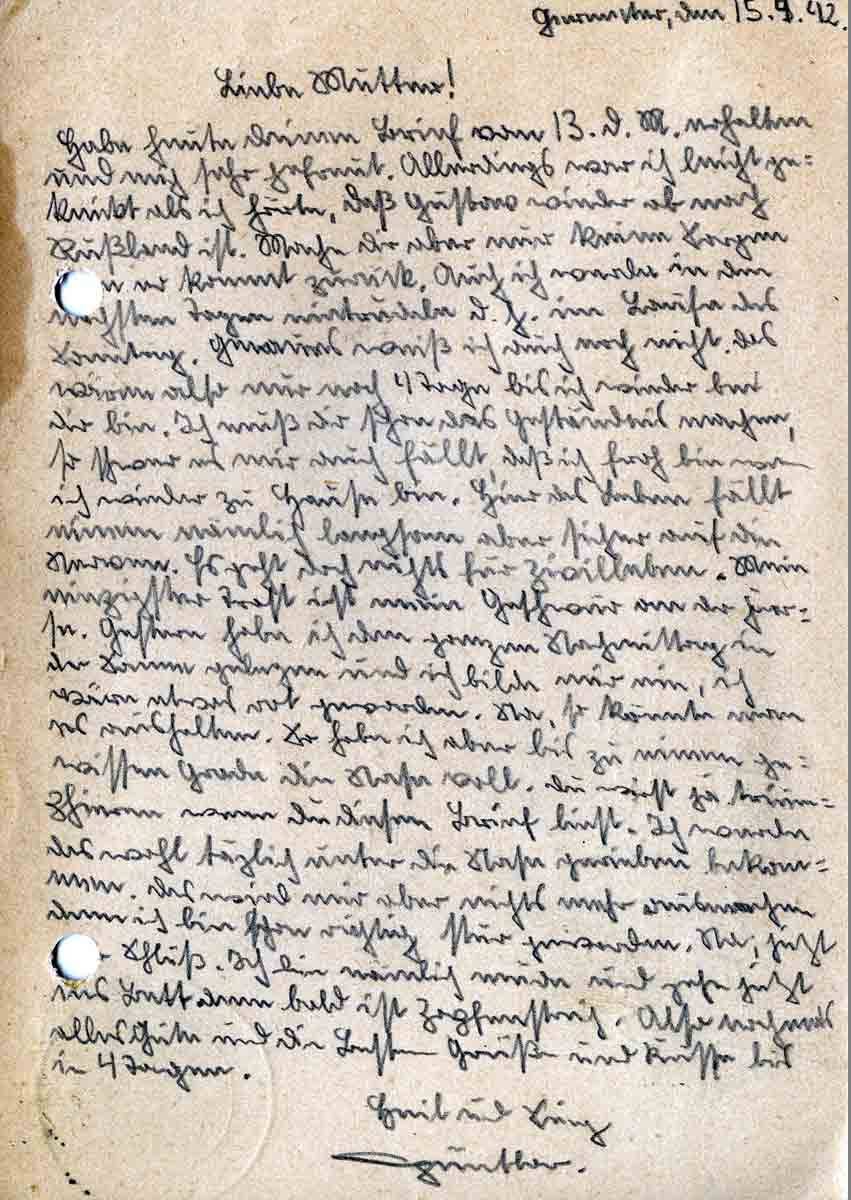 den 15.9.42.
Liebe Mutter!
Habe heute deinen Brief vom 13. d. M. erhalten
und mich sehr gefreut. Allerdings war ich leicht ge=
knickt als ich hörte, daß Gustav wieder ab nach
Rußland ist. Mache dir aber nur keine Sorgen
er kommt zurück. Auch ich werde in den
nächsten Tagen eintrudeln d. h. im Laufe des
Sonntag. Genaues weiß ich auch noch nicht. Das
wären also nur noch 4 Tage bis ich wieder bei
dir bin. Ich muß dir schon das Geständnis machen,
so schwer es mir auch fällt, daß ich froh bin
ich wieder zu Hause bin. Hier das Leben fällt
einem nämlich langsam aber sicher auf die
Nerven. Es geht doch nichts für Zivilleben. Mein
einzigster Trost ist mein Geschwür an der Fer=
se. Gestern habe ich den ganzen Nachmittag in
der Sonne gelegen und ich bilde mir ein, ich
wäre etwas rot geworden. Na, so könnte man
es aushalten. So habe ich aber bis zu einem ge=
wissen Grade die Nase voll. Du wirst ja trium=
phieren wenn du diesen Brief liest. Ich werde
das wohl täglich unter die Nase gerieben bekom=
men. Das wird mir aber nichts mehr ausmachen
denn ich bin schon richtig stur geworden. Na, jetzt
Schluß. Ich bin nämlich müde und gehe jetzt
ins Bett denn bald ist Zapfenstreich. Also nochmals
alles Gute und die besten Grüße und Küsse bis
in 4 Tagen.
Heil und Sieg
Günther.